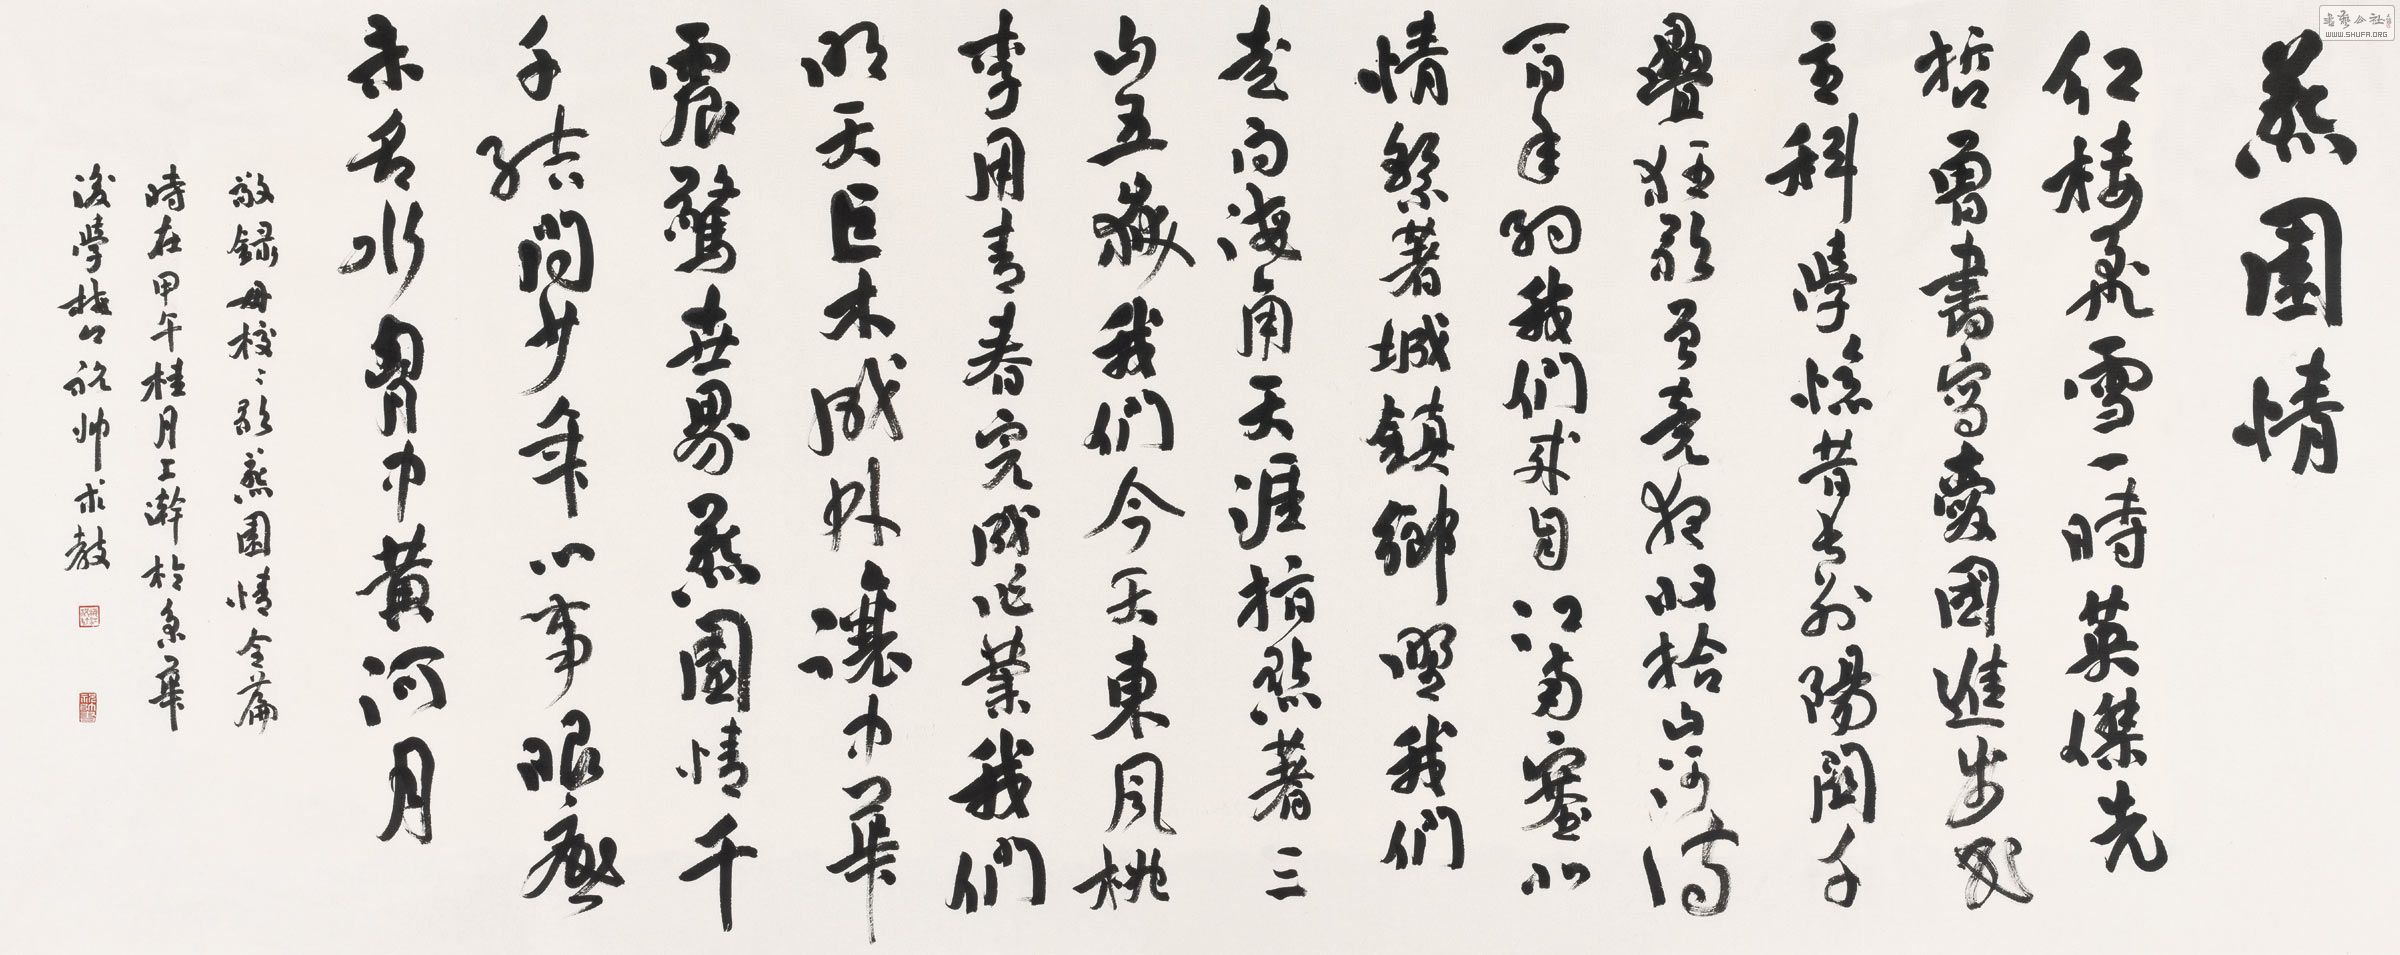 燕園情
紅樓飛雪一時英傑先
哲曾書寫愛國進步民
主科學憶昔長別陽關千
疊狂歌曾竟夜收拾山河待
百年約我們來自江南塞北
情繫著城鎮鄉野我們
走向海角天涯指點著三
山五嶽我們今天東風桃
李用青春完成作業我們
明天巨木成林讓中華
震驚世界燕園情千
千結問少年心事眼底
未名水胸中黃河月
敬錄母校校歌燕園情全篇
時在甲午桂月上澣於京華
後學 帥求教
書藝公社
WWW.SHUFA.ORG